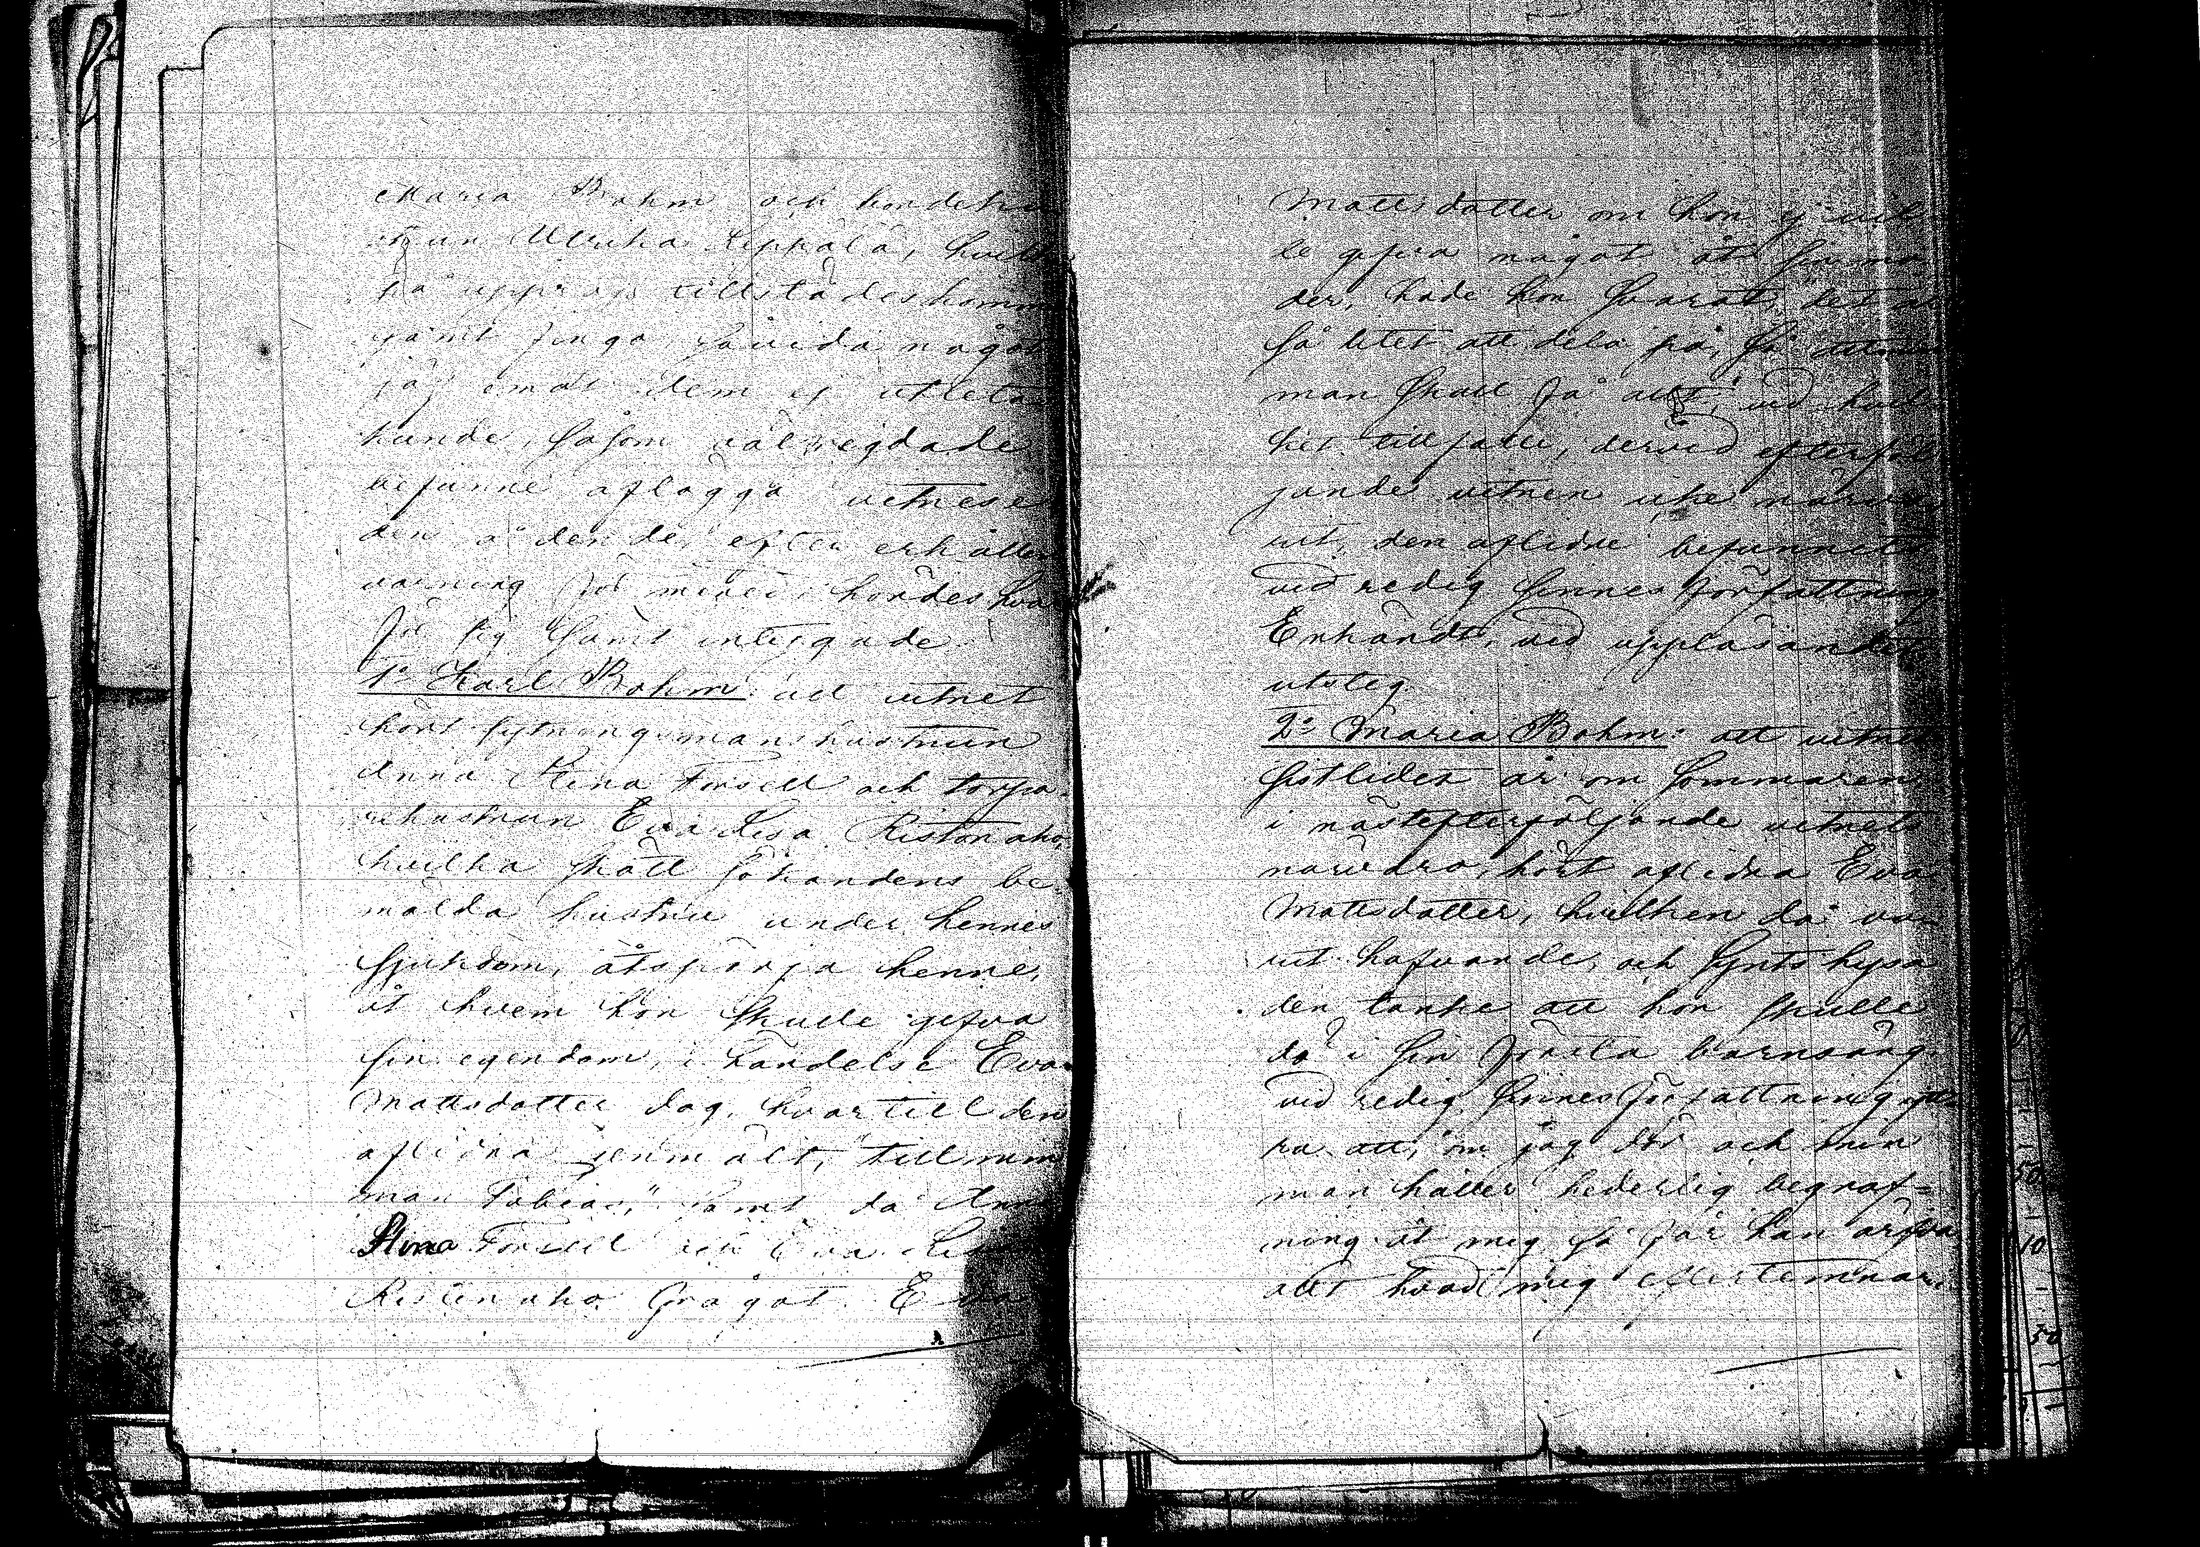 Maria Bohm och bondehu-
strun Ulrika Leppälä, hvilka
på upprop tillstädeskommo
samt fingo, såvida något
jäf emot dem ej utletas
kunde, såsom välfregdade
befunne aflägga vittnese
den å den de, efter erhållen
varning för mened, hördes hvar
för sig samt intygade
1o Karl Bohm: att vitnet
hört sytningsmanshustrun
Anna Stina Forsell och torpa-
rehustrun Eva Lisa Ristonaho,
hvilka skött sökandens be-
mälda hustru under hennes
sjukdom, åtspörja henne,
åt hvem hon skulle gifva
sin egendom, i händelse Eva
Mattsdotter dog, hvartill den
aflidna genmält, "till min
man Tobias," samt då Anna
Stina Forsell och Eva Lisa
Ristonaho frågat Eva
Mattsdotter om hon ej vil-
le gifva något åt sin mo-
der, hade hon svarat, det är
så litet att dela på, så att min
man skall få allt, vid hvil-
ket tillfälle, dervid efterföl
jande vitnen icke närva-
rit, den aflidne befunnits
vid redig sinnesförfattning
Erkändt, vid uppläsandet,
utsteg
2o Maria Bohm: att vitnet
sistlidet år om sommaren
i nästefterföljande vitnets
närvaro, hört aflidna Eva
Mattsdotter, hvilken då va-
rit hafvande, och synts hysa
den tanke att hon skulle
dö i sin första barnsäng
vid redig sinnesförfattning ytt-
ra att, "om jag dör och min
man håller hederlig begraf-
ning åt mig så får han ärfva
allt hvad mig efterlemnar,